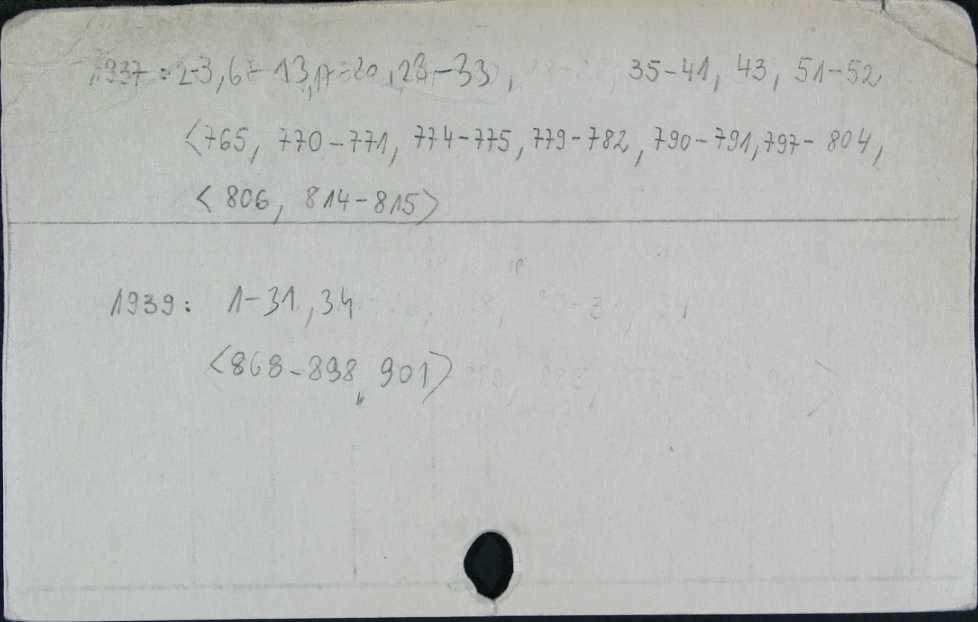 1937: 2-3, 6-13, 17-20, 28-33, 35-41, 43, 51-52
<765, 770-771, 774-775, 779-782, 790-791, 797-804,
<806, 814-815>
1939: 1-31, 34
<868-898, 901>